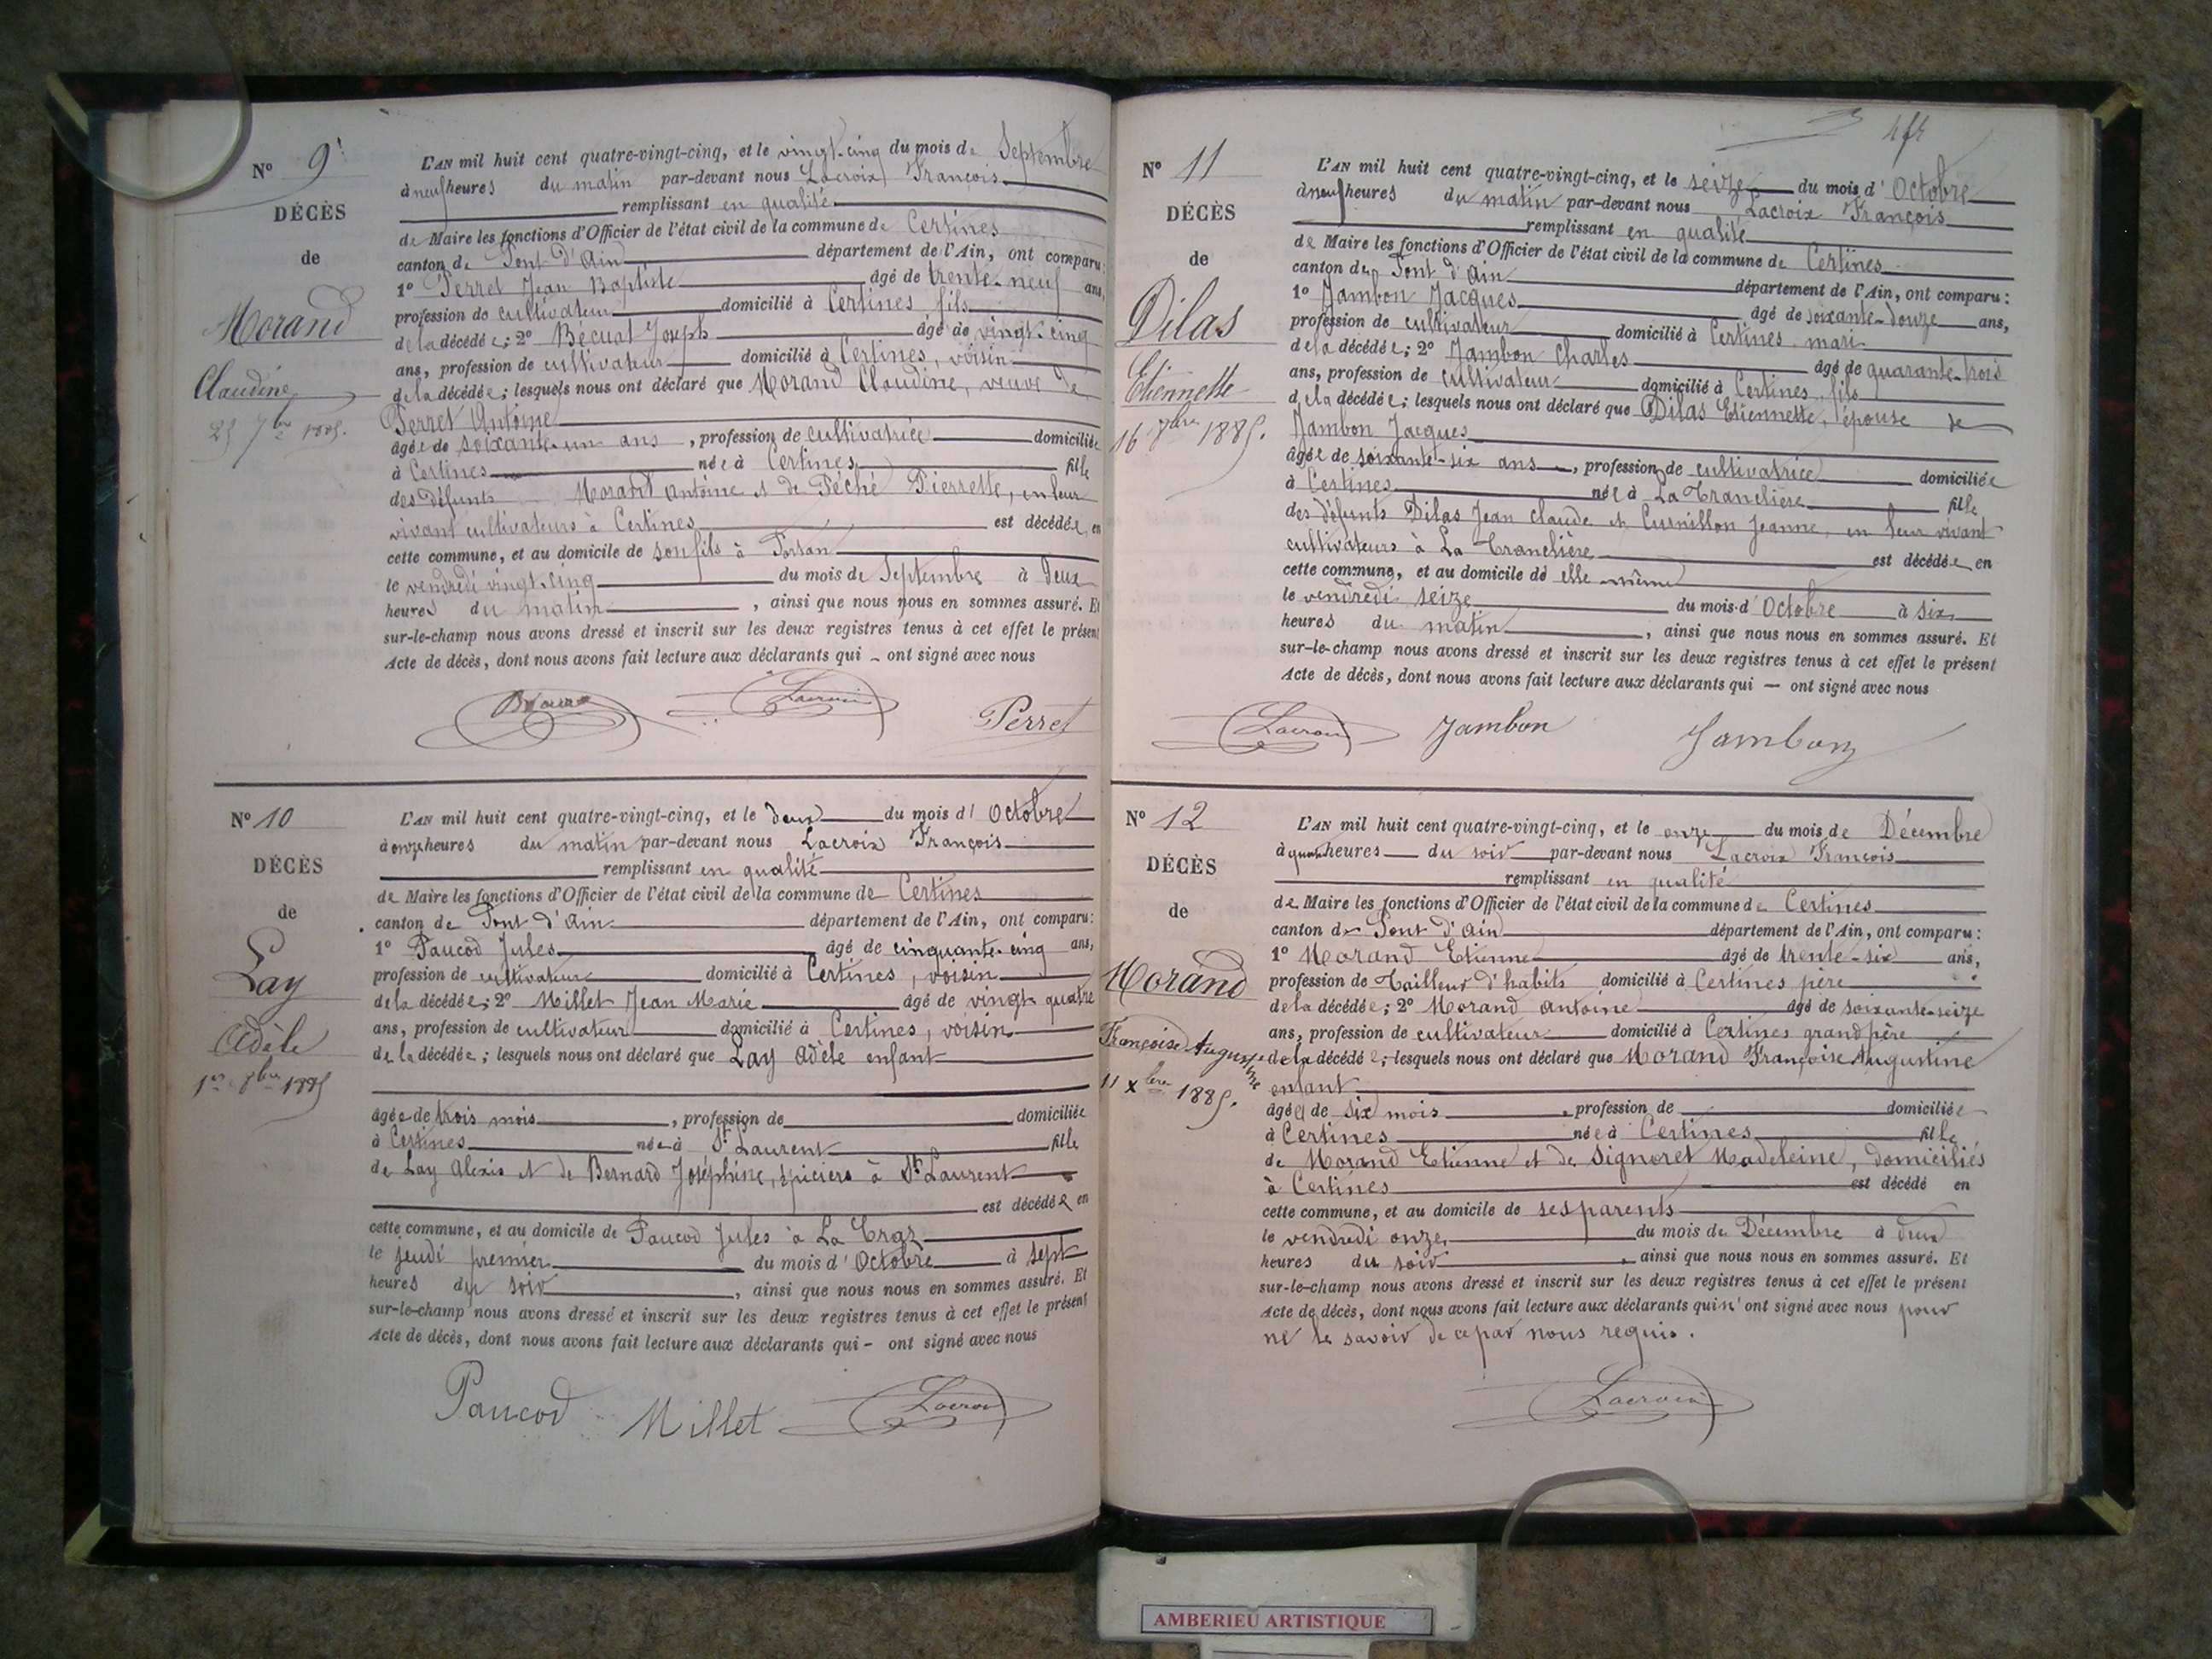 N° 9
DÉCÈS
de
Morand
Claudine
25 7bre 1885.
L'AN mil huit cent quatre-vingt-cinq, et le vingt-cinq du mois de Septembre
à neuf heures du matin par-devant nous Lacroix François
remplissant en qualité
de Maire les fonctions d'Officier de l'état civil de la commune de Certines
canton de Pont d'Ain département de l'Ain, ont comparu:
1° Perret Jean Baptiste âgé de trente-neuf ans,
profession de cultivateur domicilié à Certines fils
de la décédée; 2° Bécuat Joseph âgé de vingt-cinq
ans, profession de cultivateur domicilié à Certines, voisin
de la décédée; lesquels nous ont déclaré que Morand Claudine, veuve de
Perret Antoine
âgée de soixante-un ans, profession de cultivatrice domiciliée
à Certines née à Certines fille
des défunts Morand Antoine et de Péché Pierrette, en leur
vivant cultivateurs à Certines est décédée en
cette commune, et au domicile de son fils à
le vendredi vingt-cinq du mois de Septembre à deux
heures du matin, ainsi que nous nous en sommes assuré. Et
sur-le-champ nous avons dressé et inscrit sur les deux registres tenus à cet effet le présent
Acte de décès, dont nous avons fait lecture aux déclarants qui – ont signé avec nous
Lacroix Perret
N° 10
DÉCÈS
de
Lay
Adèle
1er 8bre 1885
L'AN mil huit cent quatre-vingt-cinq, et le deux du mois d'Octobre
à onze heures du matin par-devant nous Lacroix François
remplissant en qualité
de Maire les fonctions d'Officier de l'état civil de la commune de Certines
canton de Pont d'Ain département de l'Ain, ont comparu:
1° Paucod Jules âgé de cinquante-cinq ans,
profession de cultivateur domicilié à Certines, voisin
de la décédée; 2° Millet Jean Marie âgé de vingt-quatre
ans, profession de cultivateur domicilié à Certines, voisin
de la décédée; lesquels nous ont déclaré que Lay Adèle enfant
âgée de trois mois, profession de domiciliée
à Certines née à St Laurent fille
de Lay Alexis et de Bernard Joséphine, épiciers à St Laurent
est décédée en
cette commune, et au domicile de Paucod Jules à La Craz
le jeudi premier du mois d'Octobre à sept
heures du soir, ainsi que nous nous en sommes assuré. Et
sur-le-champ nous avons dressé et inscrit sur les deux registres tenus à cet effet le présent
Acte de décès, dont nous avons fait lecture aux déclarants qui – ont signé avec nous
Paucod Millet Lacroix
N° 11
DÉCÈS
de
Dilas
Etiennette
16 8bre 1885.
L'AN mil huit cent quatre-vingt-cinq, et le seize du mois d'Octobre
à neuf heures du matin par-devant nous Lacroix François
remplissant en qualité
de Maire les fonctions d'Officier de l'état civil de la commune de Certines
canton de Pont d'Ain département de l'Ain, ont comparu:
1° Jambon Jacques âgé de soixante-douze ans,
profession de cultivateur domicilié à Certines mari
de la décédée; 2° Jambon Charles âgé de quarante-trois
ans, profession de cultivateur domicilié à Certines fils
de la décédée; lesquels nous ont déclaré que Dilas Etiennette, épouse de
Jambon Jacques
âgée de soixante-six ans, profession de cultivatrice domiciliée
à Certines née à La Tranclière fille
des défunts Dilas Jean Claude et Curnillon Jeanne, en leur vivant
cultivateurs à La Tranclière est décédée en
cette commune, et au domicile de elle-même
le vendredi seize du mois d'Octobre à six
heures du matin, ainsi que nous nous en sommes assuré. Et
sur-le-champ nous avons dressé et inscrit sur les deux registres tenus à cet effet le présent
Acte de décès, dont nous avons fait lecture aux déclarants qui — ont signé avec nous
Lacroix Jambon Jambon
N° 12
DÉCÈS
de
Morand
Françoise Augustine
11 Xbre 1885.
L'AN mil huit cent quatre-vingt-cinq, et le onze du mois de Décembre
à quatre heures du soir par-devant nous Lacroix François
remplissant en qualité
de Maire les fonctions d'Officier de l'état civil de la commune de Certines
canton de Pont d'Ain département de l'Ain, ont comparu:
1° Morand Etienne âgé de trente-six ans,
profession de Tailleur d'habits domicilié à Certines père
de la décédée; 2° Morand Antoine âgé de soixante-seize
ans, profession de cultivateur domicilié à Certines grand père
de la décédée; lesquels nous ont déclaré que Morand Françoise Augustine
enfant
âgée de six mois, profession de domiciliée
à Certines née à Certines fille
de Morand Etienne et de Signoret Madeleine, domiciliés
à Certines est décédé en
cette commune, et au domicile de ses parents
le vendredi onze du mois de Décembre à deux
heures du soir, ainsi que nous nous en sommes assuré. Et
sur-le-champ nous avons dressé et inscrit sur les deux registres tenus à cet effet le présent
Acte de décès, dont nous avons fait lecture aux déclarants qui n'ont signé avec nous pour
ne le savoir de ce par nous requis.
Lacroix
AMBERIEU ARTISTIQUE